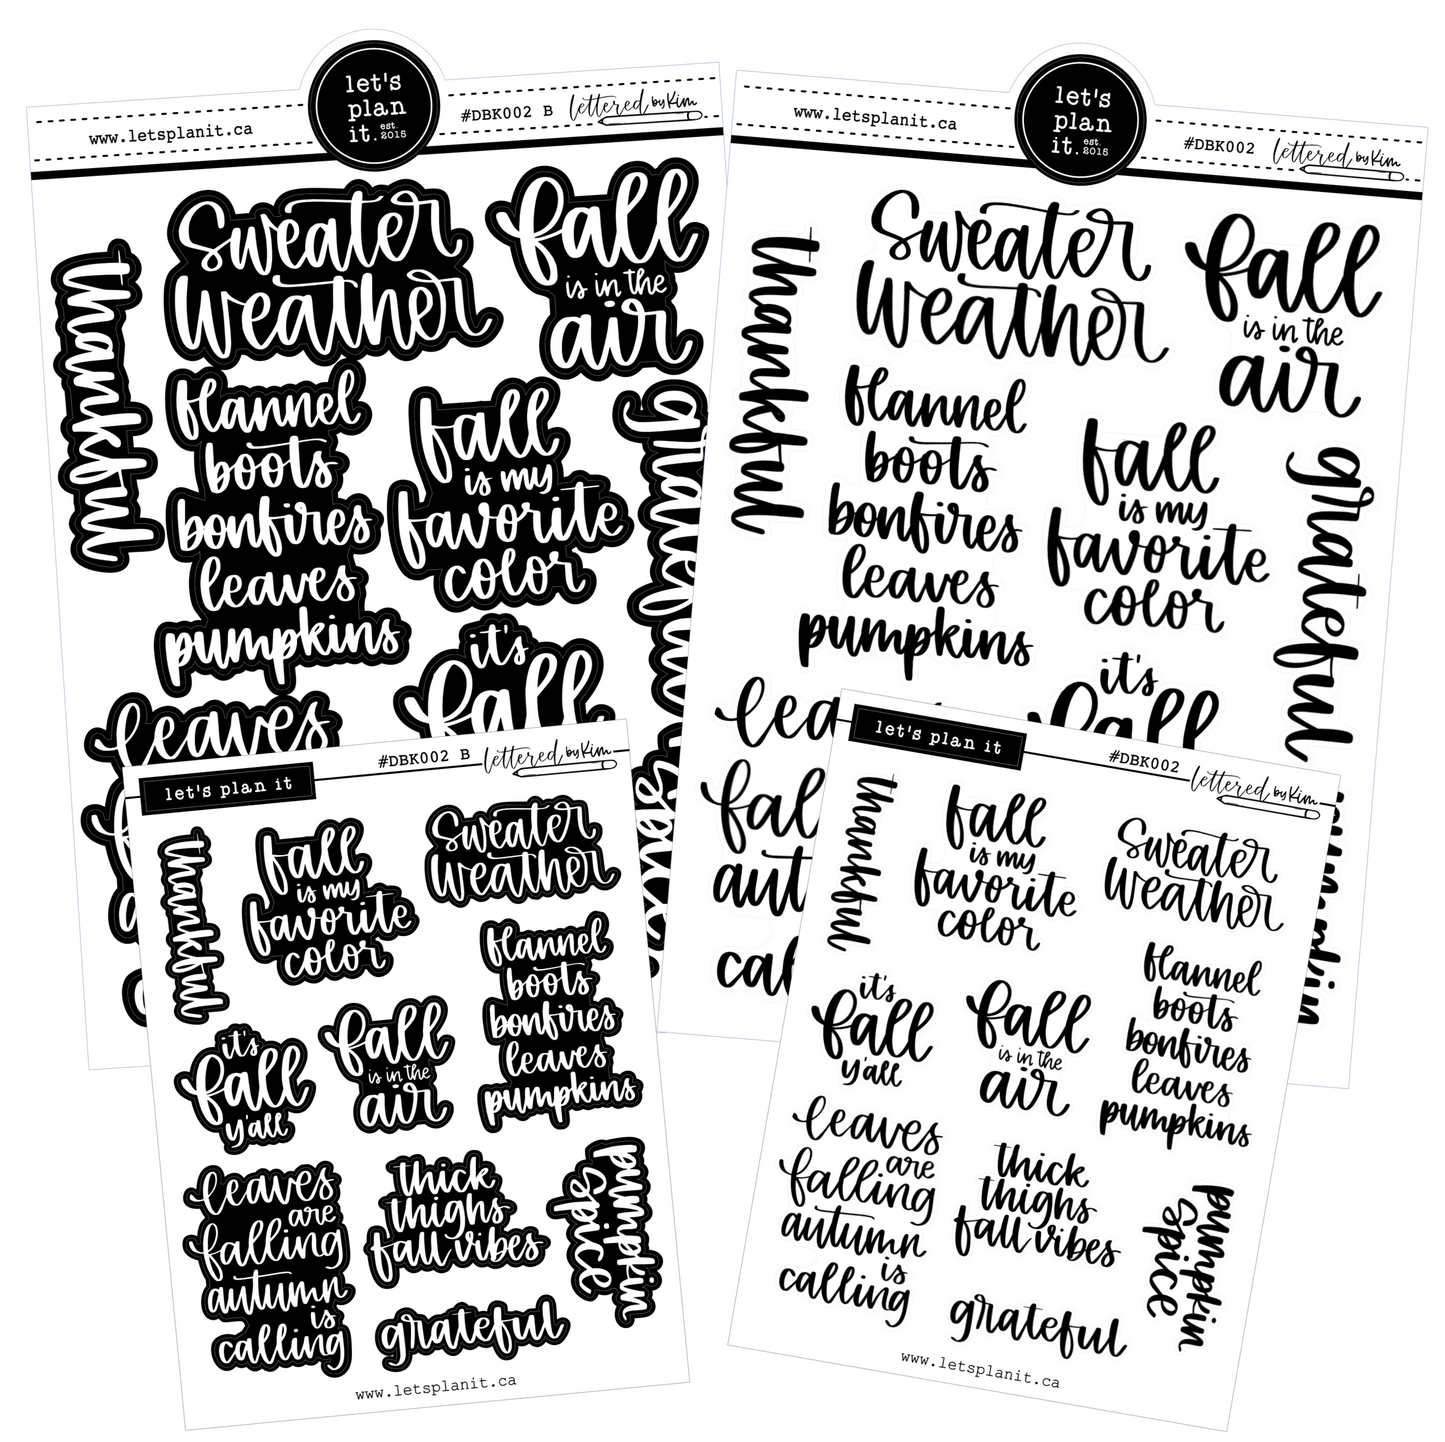 let's
plan
it. est. 2015
www.letsplanit.ca
#DBK002 B
lettered by Kim
thankful
Sweater
Weather
fall
is in the
air
flannel
boots
bonfires
leaves
pumpkins
fall
is my
favorite
color
grateful
it's
fall
leaves
spice
let's
plan
it. est. 2015
www.letsplanit.ca
#DBK002
lettered by Kim
thankful
Sweater
Weather
fall
is in the
air
flannel
boots
bonfires
leaves
pumpkins
fall
is my
favorite
color
grateful
it's
fall
lea
fal
aut
cal
let's plan it
#DBK002 B
lettered by Kim
thankful
fall
is my
favorite
color
Sweater
Weather
flannel
boots
bonfires
leaves
pumpkins
it's
fall
y'all
fall
is in the
air
leaves
are
falling
autumn
is
calling
thick
thighs
fall vibes
pumpkin
spice
grateful
www.letsplanit.ca
let's plan it
#DBK002
lettered by Kim
thankful
fall
is my
favorite
color
Sweater
Weather
flannel
boots
bonfires
leaves
pumpkins
it's
fall
y'all
fall
is in the
air
leaves
are
falling
autumn
is
calling
thick
thighs
fall vibes
pumpkin
spice
grateful
www.letsplanit.ca